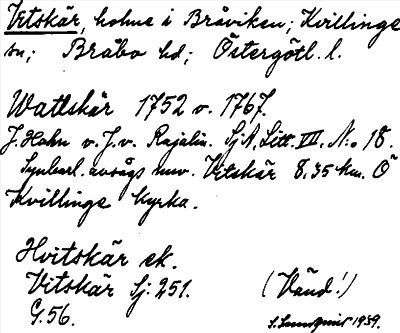 Vitskär, holme i Bråviken; Kvillinge
sn; Bråbo hd; Östergötl. l.
Wattskär 1752 o. 1767.
J. Hahn o. J. v. Rajalin. SjA, Litt. VII, N:o 18.
Synbarl. avsågs nuv. Vitskär 8,35 km. Ö
Kvillinge kyrka.
Hvitskär ek.
Vitskär Sj: 251.
(Vänd!)
G. 56.
1939.